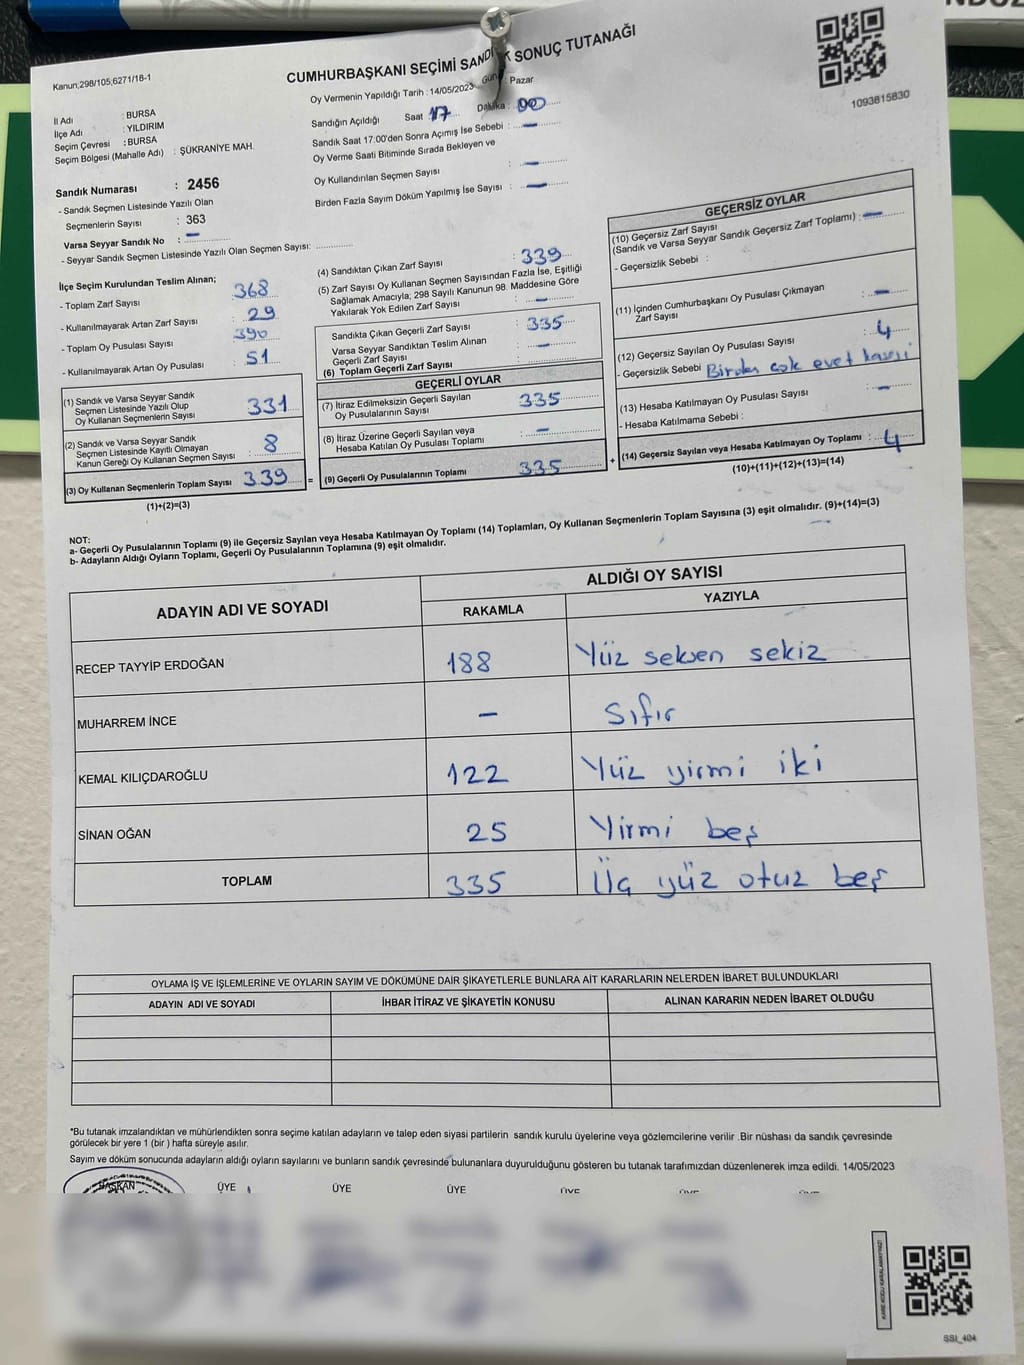 Kanun;298/105,6271/18-1
CUMHURBAŞKANI SEÇİMİ SANDIK SONUÇ TUTANAĞI
1093815830
Oy Vermenin Yapıldığı Tarih : 14/05/2023 Gün : Pazar
İl Adı : BURSA
İlçe Adı : YILDIRIM
Seçim Çevresi : BURSA
Seçim Bölgesi (Mahalle Adı) : ŞÜKRANİYE MAH.
Sandığın Açıldığı Saat 17 Dakika : 00
Sandık Saat 17:00'den Sonra Açımış İse Sebebi : —
Oy Verme Saati Bitiminde Sırada Bekleyen ve
Oy Kullandırılan Seçmen Sayısı : —
Birden Fazla Sayım Döküm Yapılmış İse Sayısı : —
Sandık Numarası : 2456
- Sandık Seçmen Listesinde Yazılı Olan
Seçmenlerin Sayısı : 363
Varsa Seyyar Sandık No : —
- Seyyar Sandık Seçmen Listesinde Yazılı Olan Seçmen Sayısı: ................
İlçe Seçim Kurulundan Teslim Alınan;
- Toplam Zarf Sayısı : 368
- Kullanılmayarak Artan Zarf Sayısı : 29
- Toplam Oy Pusulası Sayısı : 390
- Kullanılmayarak Artan Oy Pusulası : 51
(1) Sandık ve Varsa Seyyar Sandık
Seçmen Listesinde Yazılı Olup
Oy Kullanan Seçmenlerin Sayısı : 331
(2) Sandık ve Varsa Seyyar Sandık
Seçmen Listesinde Kayıtlı Olmayan
Kanun Gereği Oy Kullanan Seçmen Sayısı : 8
(3) Oy Kullanan Seçmenlerin Toplam Sayısı : 339
(1)+(2)=(3)
(4) Sandıktan Çıkan Zarf Sayısı : 339
(5) Zarf Sayısı Oy Kullanan Seçmen Sayısından Fazla İse, Eşitliği
Sağlamak Amacıyla; 298 Sayılı Kanunun 98. Maddesine Göre
Yakılarak Yok Edilen Zarf Sayısı : —
Sandıkta Çıkan Geçerli Zarf Sayısı : 335
Varsa Seyyar Sandıktan Teslim Alınan
Geçerli Zarf Sayısı : —
(6) Toplam Geçerli Zarf Sayısı :
GEÇERLİ OYLAR
(7) İtiraz Edilmeksizin Geçerli Sayılan
Oy Pusulalarının Sayısı : 335
(8) İtiraz Üzerine Geçerli Sayılan veya
Hesaba Katılan Oy Pusulası Toplamı : —
= (9) Geçerli Oy Pusulalarının Toplamı 335 +
GEÇERSİZ OYLAR
(10) Geçersiz Zarf Sayısı
(Sandık ve Varsa Seyyar Sandık Geçersiz Zarf Toplamı) : —
- Geçersizlik Sebebi :
(11) İçinden Cumhurbaşkanı Oy Pusulası Çıkmayan
Zarf Sayısı : —
(12) Geçersiz Sayılan Oy Pusulası Sayısı : 4
- Geçersizlik Sebebi : Birden çok evet
(13) Hesaba Katılmayan Oy Pusulası Sayısı : —
- Hesaba Katılmama Sebebi :
(14) Geçersiz Sayılan veya Hesaba Katılmayan Oy Toplamı : 4
(10)+(11)+(12)+(13)=(14)
NOT:
a- Geçerli Oy Pusulalarının Toplamı (9) ile Geçersiz Sayılan veya Hesaba Katılmayan Oy Toplamı (14) Toplamları, Oy Kullanan Seçmenlerin Toplam Sayısına (3) eşit olmalıdır. (9)+(14)=(3)
b- Adayların Aldığı Oyların Toplamı, Geçerli Oy Pusulalarının Toplamına (9) eşit olmalıdır.
ADAYIN ADI VE SOYADI
ALDIĞI OY SAYISI
RAKAMLA YAZIYLA
RECEP TAYYİP ERDOĞAN 188 Yüz seksen sekiz
MUHARREM İNCE — Sıfır
KEMAL KILIÇDAROĞLU 122 Yüz yirmi iki
SİNAN OĞAN 25 Yirmi beş
TOPLAM 335 Üç yüz otuz beş
OYLAMA İŞ VE İŞLEMLERİNE VE OYLARIN SAYIM VE DÖKÜMÜNE DAİR ŞİKAYETLERLE BUNLARA AİT KARARLARIN NELERDEN İBARET BULUNDUKLARI
ADAYIN ADI VE SOYADI İHBAR İTİRAZ VE ŞİKAYETİN KONUSU ALINAN KARARIN NEDEN İBARET OLDUĞU
*Bu tutanak imzalandıktan ve mühürlendikten sonra seçime katılan adayların ve talep eden siyasi partilerin sandık kurulu üyelerine veya gözlemcilerine verilir .Bir nüshası da sandık çevresinde
görülecek bir yere 1 (bir ) hafta süreyle asılır.
Sayım ve döküm sonucunda adayların aldığı oyların sayılarını ve bunların sandık çevresinde bulunanlara duyurulduğunu gösteren bu tutanak tarafımızdan düzenlenerek imza edildi. 14/05/2023
BAŞKAN ÜYE ÜYE ÜYE ÜYE ÜYE ÜYE
KARE KODU KARALAMAYINIZ!
SSI_404